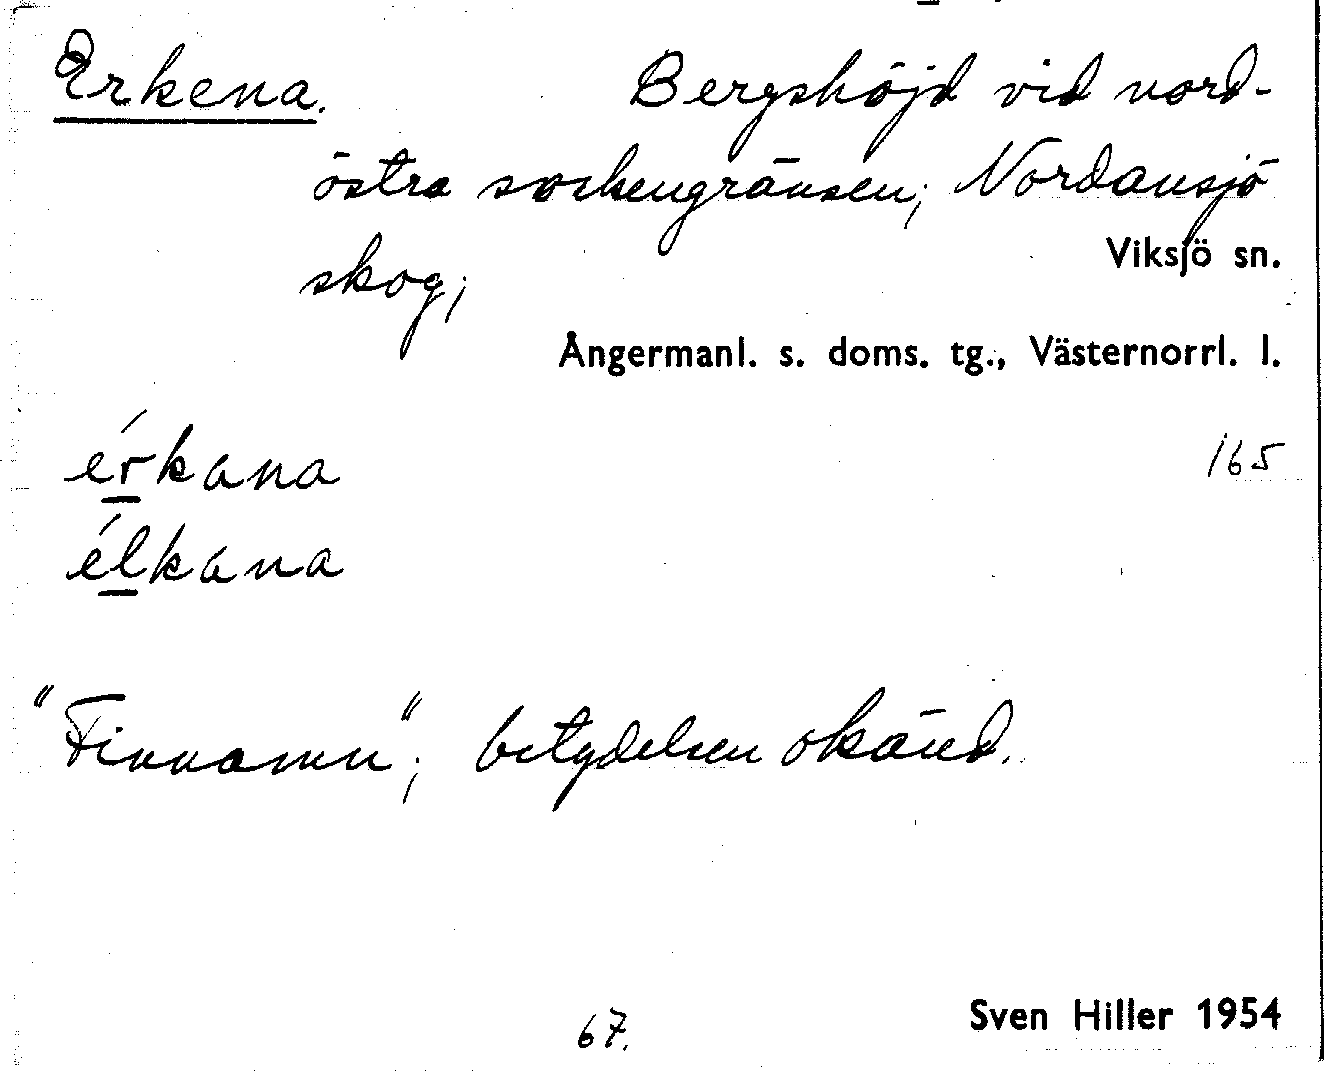 Erkena. Bergshöjd vid nord-
östra sockengränsen; Nordansjö
skog;
Viksjö sn.
Ångermanl. s. doms. tg., Västernorrl. l.
érkana 165
élkana
"Finnamn"; betydelsen okänd.
67. Sven Hiller 1954